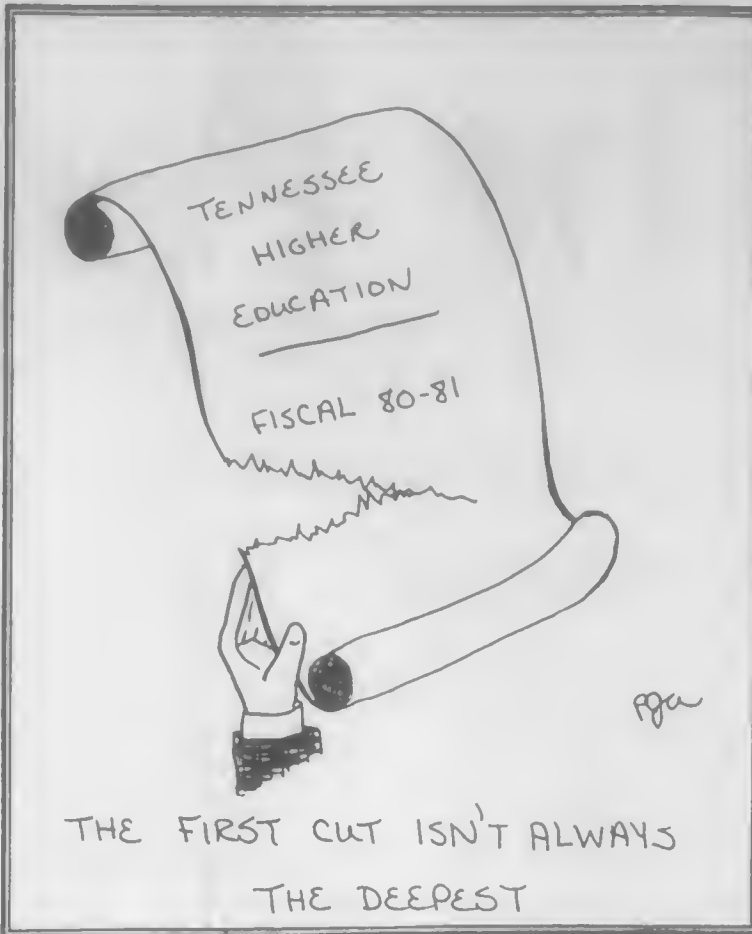 TENNESSEE
HIGHER
EDUCATION
FISCAL 80-81
THE FIRST CUT ISN'T ALWAYS
THE DEEPEST